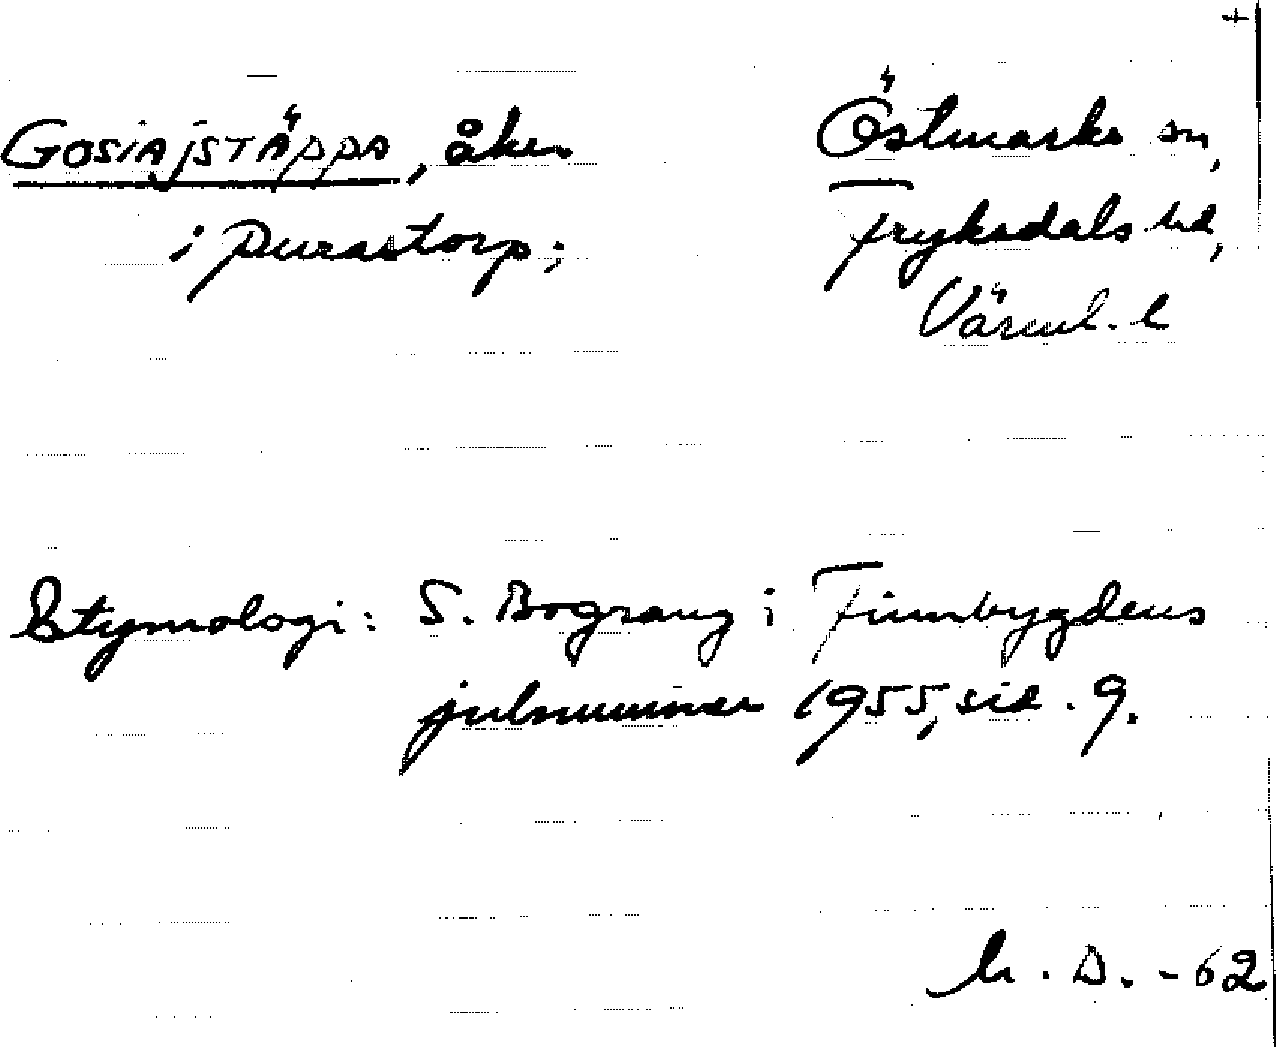 GOSIAJSTÄPPA, åker
i Purastorp;
Östmarks sn,
Fryksdals hd,
Värml. l
Etymologi: S. Bograng i Finnbygdens
julnummer 1955, sid. 9.
D. -62